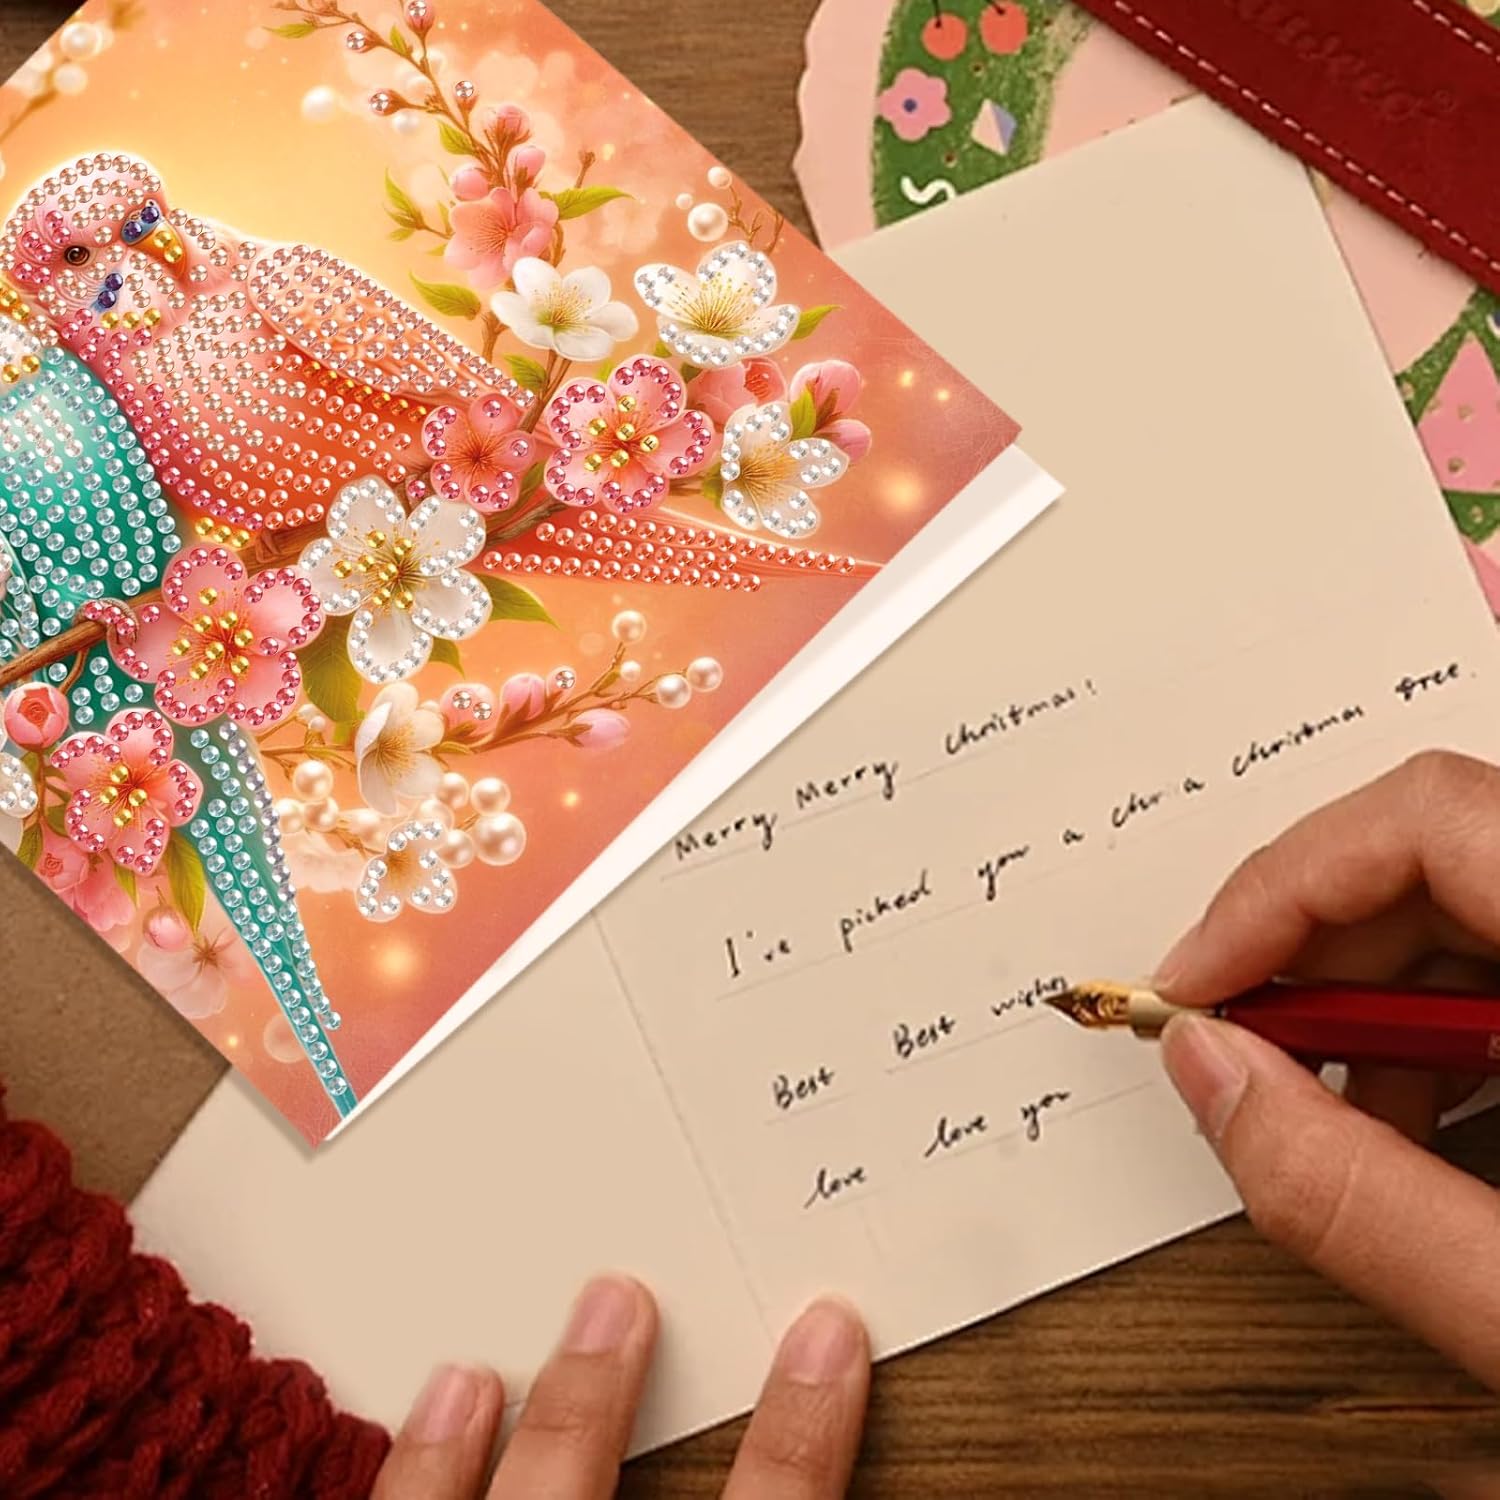 Merry Merry christmas!
I've picked you a chr a christmas tree.
Best Best wishes
love love you